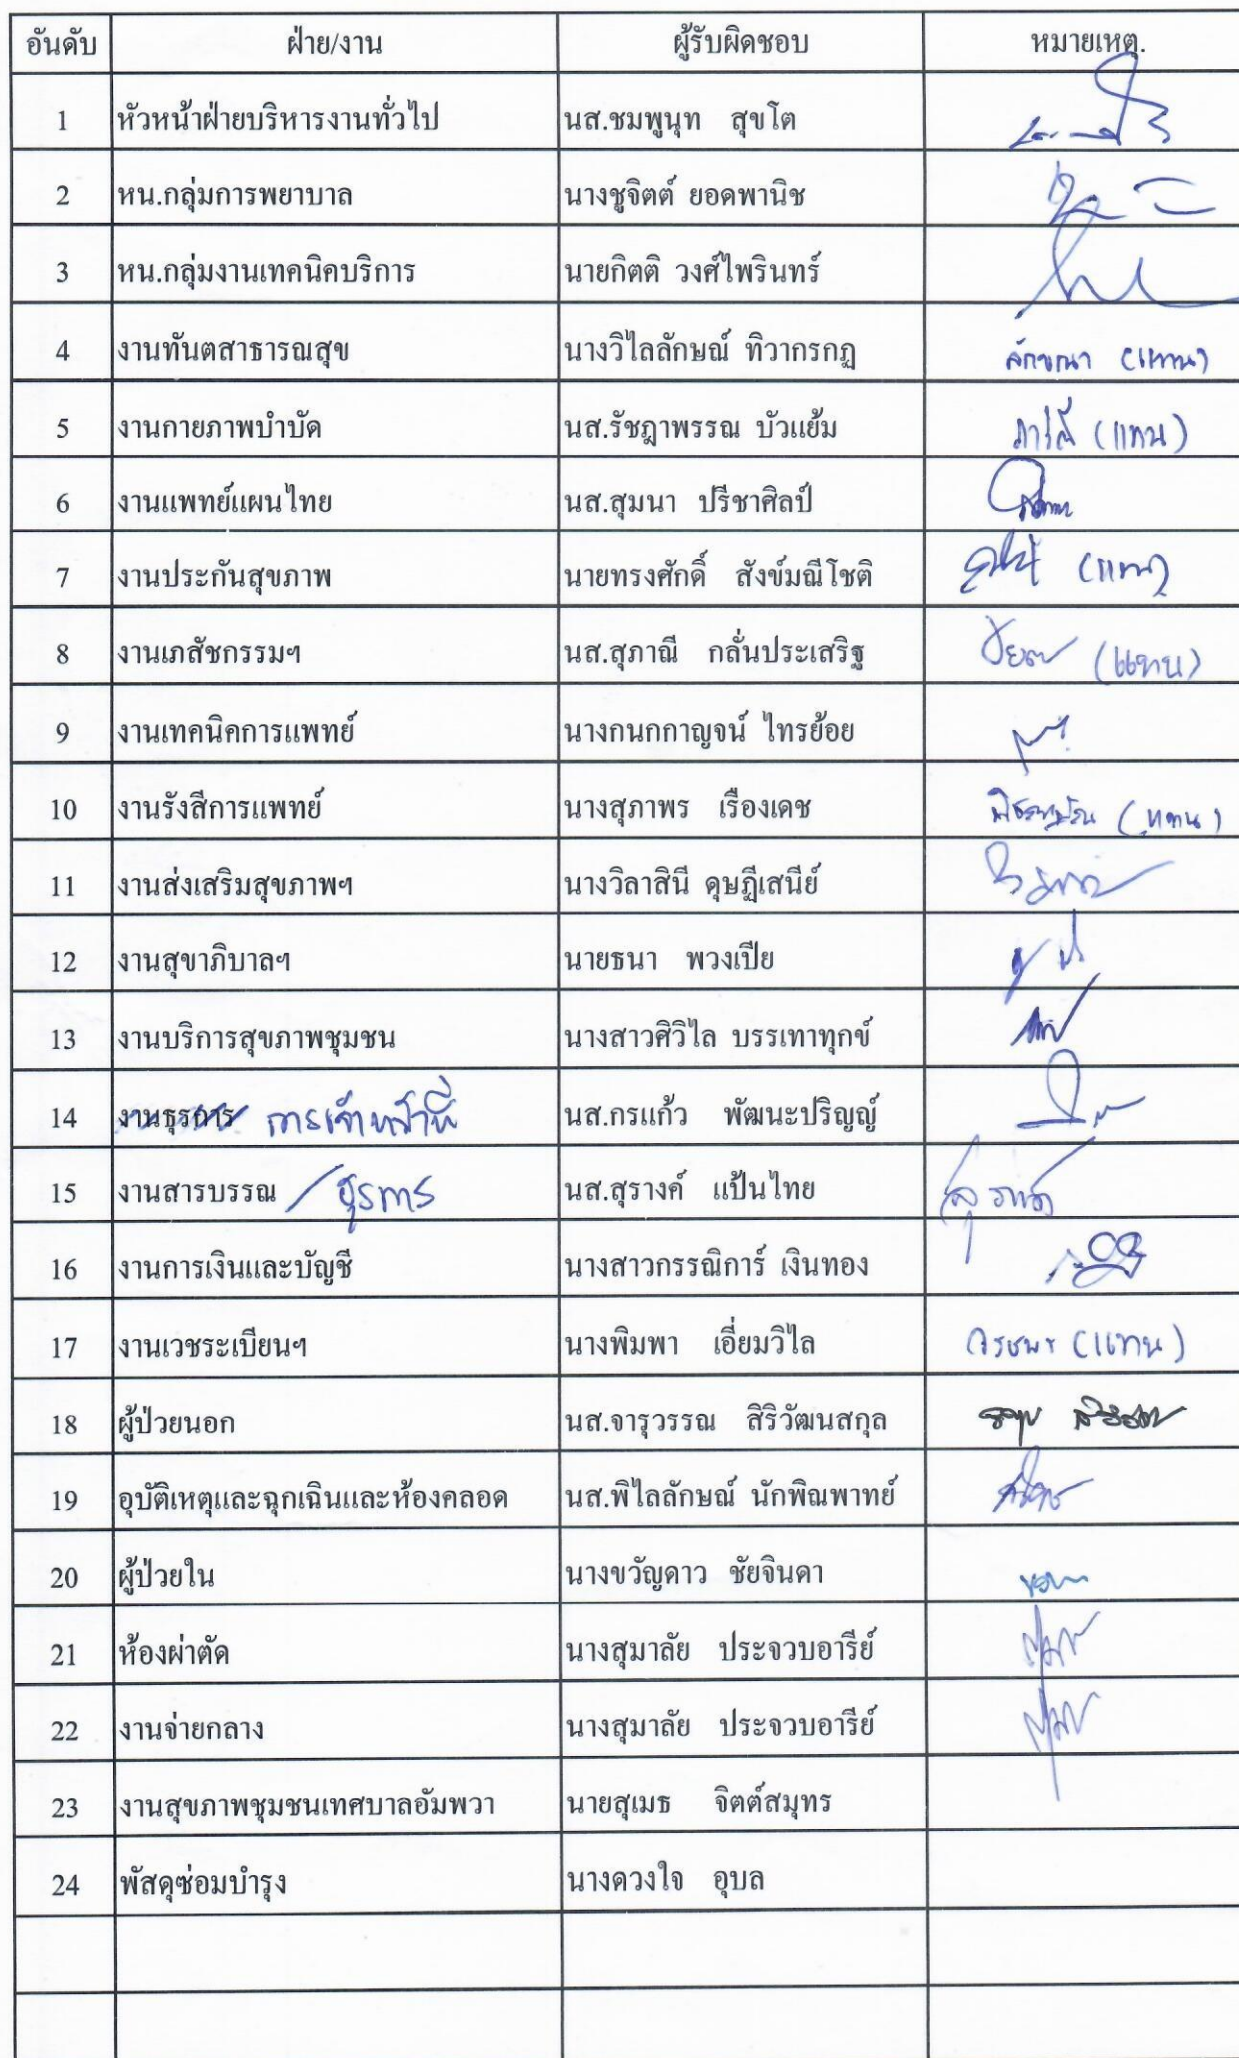 อันดับ ฝ่าย/งาน ผู้รับผิดชอบ หมายเหตุ.
1 หัวหน้าฝ่ายบริหารงานทั่วไป นส.ชมพูนุท สุขโต
2 หน.กลุ่มการพยาบาล นางชูจิตต์ ยอดพานิช
3 หน.กลุ่มงานเทคนิคบริการ นายกิตติ วงศ์ไพรินทร์
4 งานทันตสาธารณสุข นางวิไลลักษณ์ ทิวากรกฎ ลักขณา (แทน)
5 งานกายภาพบำบัด นส.รัชฎาพรรณ บัวแย้ม (แทน)
6 งานแพทย์แผนไทย นส.สุมนา ปรีชาศิลป์
7 งานประกันสุขภาพ นายทรงศักดิ์ สังข์มณีโชติ (แทน)
8 งานเภสัชกรรมฯ นส.สุภาณี กลั่นประเสริฐ (แทน)
9 งานเทคนิคการแพทย์ นางกนกกาญจน์ ไทรย้อย
10 งานรังสีการแพทย์ นางสุภาพร เรืองเดช (แทน)
11 งานส่งเสริมสุขภาพฯ นางวิลาสินี ดุษฎีเสนีย์
12 งานสุขาภิบาลฯ นายธนา พวงเปีย
13 งานบริการสุขภาพชุมชน นางสาวศิวิไล บรรเทาทุกข์
14 งานธุรการ การเจ้าหน้าที่ นส.กรแก้ว พัฒนะปริญญ์
15 งานสารบรรณ / ธุรการ นส.สุรางค์ แป้นไทย
16 งานการเงินและบัญชี นางสาวกรรณิการ์ เงินทอง
17 งานเวชระเบียนฯ นางพิมพา เอี่ยมวิไล (แทน)
18 ผู้ป่วยนอก นส.จารุวรรณ สิริวัฒนสกุล
19 อุบัติเหตุและฉุกเฉินและห้องคลอด นส.พิไลลักษณ์ นักพิณพาทย์
20 ผู้ป่วยใน นางขวัญดาว ชัยจินดา
21 ห้องผ่าตัด นางสุมาลัย ประจวบอารีย์
22 งานจ่ายกลาง นางสุมาลัย ประจวบอารีย์
23 งานสุขภาพชุมชนเทศบาลอัมพวา นายสุเมธ จิตต์สมุทร
24 พัสดุซ่อมบำรุง นางดวงใจ อุบล